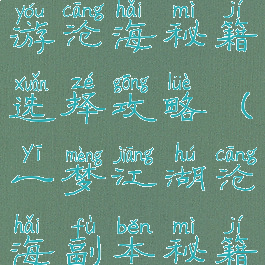 yóu cāng hǎi mì jí
游沧海秘籍
xuǎn zé gōng lüè
选择攻略(
yī mèng jiāng hú cāng
一梦江湖沧
hǎi fù běn mì jí
海副本秘籍